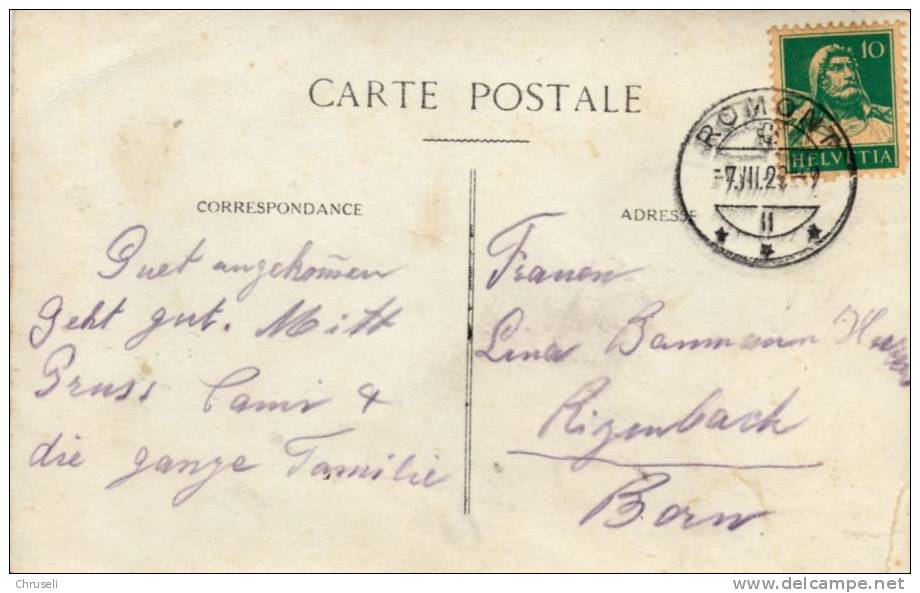 CARTE POSTALE
CORRESPONDANCE
Guet angekom̄en
Geht gut. Mitt
Gruss Cami &
die ganze Familie
ADRESSE
Frauen
Lina Baumann
Rizenbach
Bern
10
HELVETIA
ROMONT
7.VII.2
II
Chruseli
delcampe.net